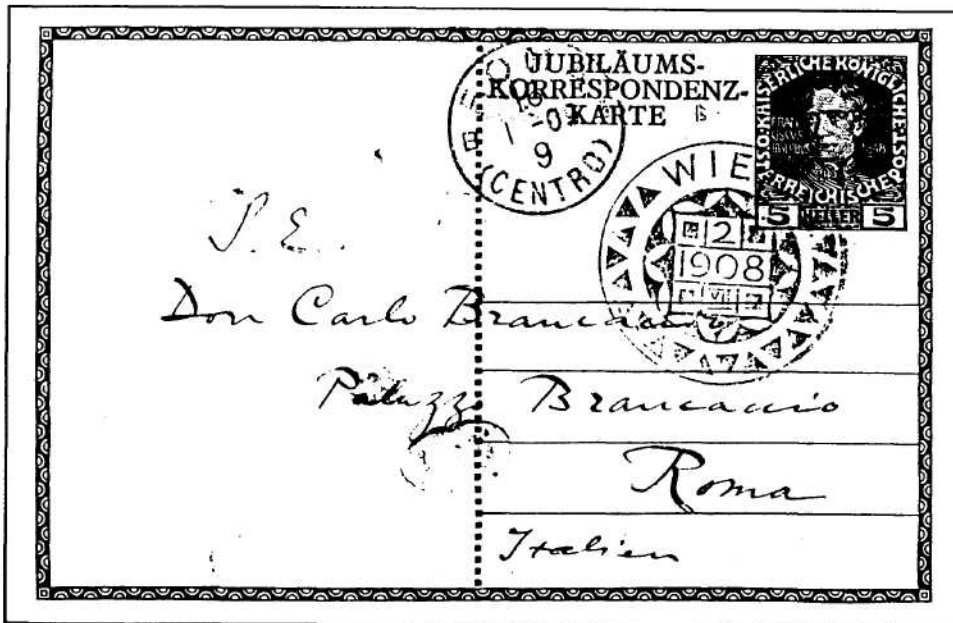 JUBILÄUMS-
KORRESPONDENZ-
KARTE
KAISERLICHE KÖNIGLICHE ÖSTERREICHISCHE POST
5 HELLER 5
(CENTRO)
9
WIE
2
1908
VII
S. E.
Don Carlo Brancaccio
Palazzo Brancaccio
Roma
Italien